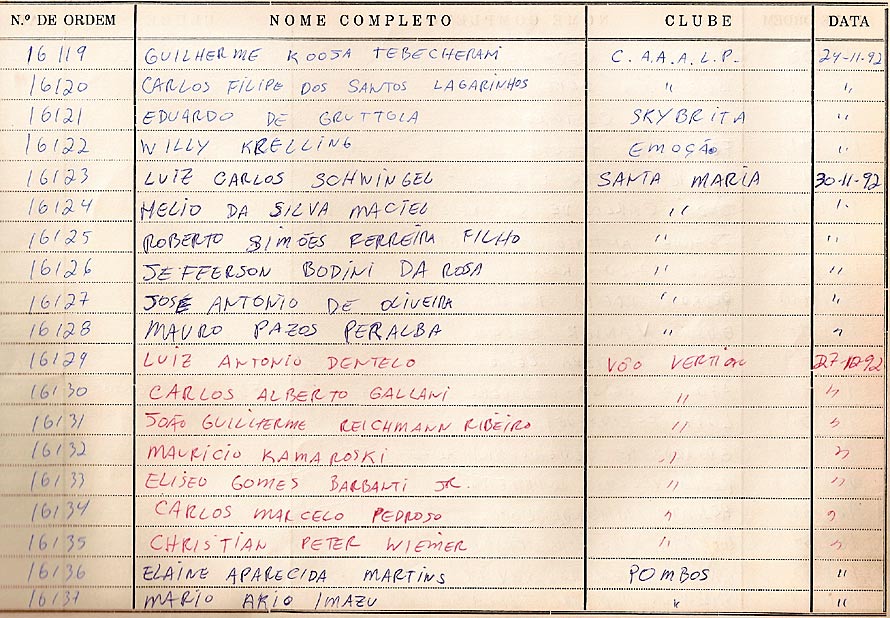 N.º DE ORDEM NOME COMPLETO CLUBE DATA
16119 GUILHERME KOOJA TEBECHERANI C.A.A.L.P. 24-11-92
16120 CARLOS FILIPE DOS SANTOS LAGARINHOS " "
16121 EDUARDO DE GRUTTOLA SKYBRITA "
16122 WILLY KRELLING EMOÇÃO "
16123 LUIZ CARLOS SCHWINGEL SANTA MARIA 30-11-92
16124 HELIO DA SILVA MACIEL " "
16125 ROBERTO SIMÕES FERREIRA FILHO " "
16126 JEFFERSON BODINI DA ROSA " "
16127 JOSÉ ANTONIO DE OLIVEIRA " "
16128 MAURO PAZOS PERALBA " "
16129 LUIZ ANTONIO DENTELO VÔO VERTICAL 27-12-92
16130 CARLOS ALBERTO GALLANI " "
16131 JOÃO GUILHERME REICHMANN RIBEIRO " "
16132 MAURICIO KAMAROSKI " "
16133 ELISEO GOMES BARBANTI JR. " "
16134 CARLOS MARCELO PEDROSO " "
16135 CHRISTIAN PETER WIEMER " "
16136 ELAINE APARECIDA MARTINS POMBOS "
16137 MARIO AKIO IMAZU " "